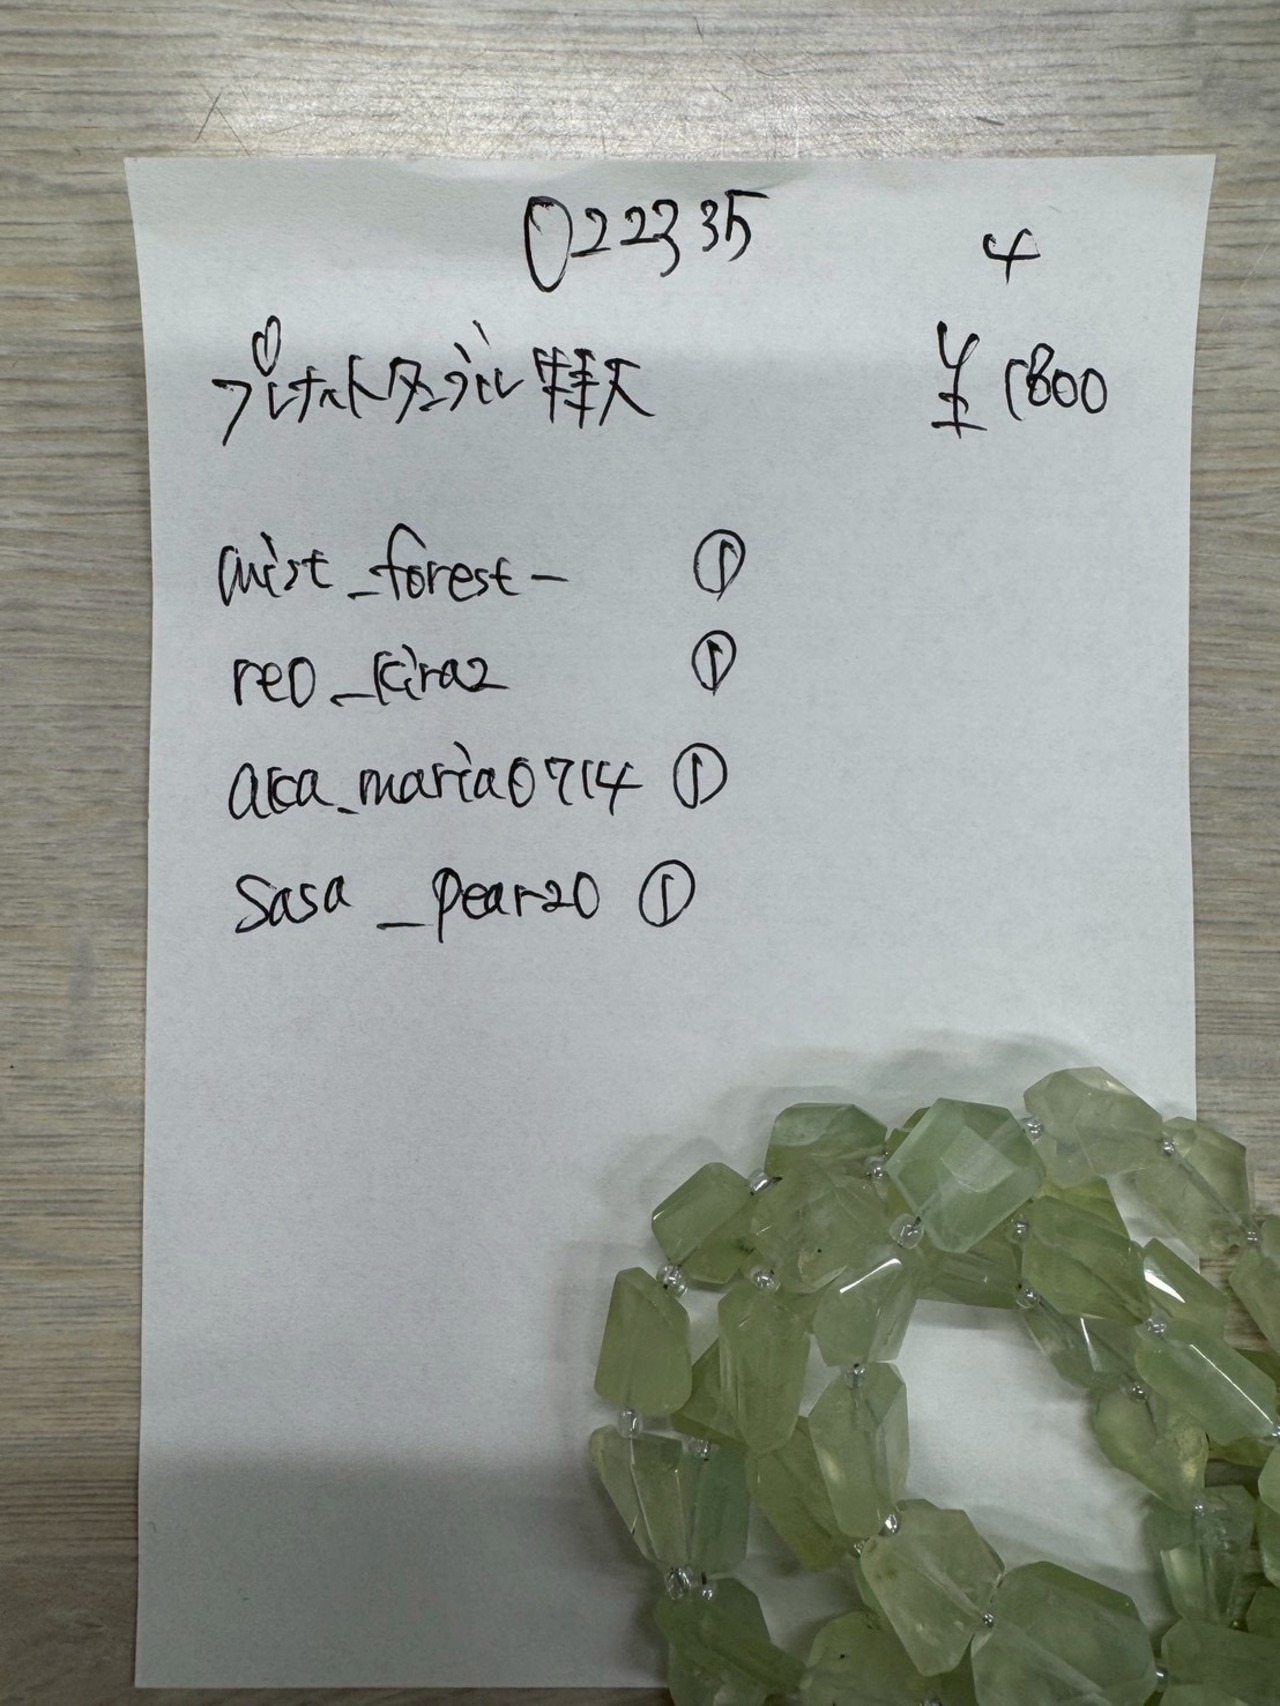 022335 4
プレナイトタンブル特大 ¥1800
mist_forest_ ①
reo_kira2 ①
aka_maria0714 ①
Sasa_pear20 ①